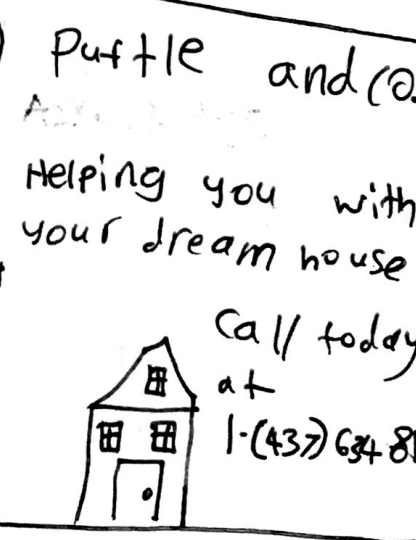 Purtle and co.
Helping you with
your dream house
Call today
at
1-(437) 634 81